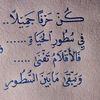 كُنْ حَرْفًا جَمِيلًا..
فِي سُطُورِ الحَيَاةِ....
فَالأَقْلَامُ تَفْنَى..
وَيَبْقَى مَا بَيْنَ السُّطُورِ